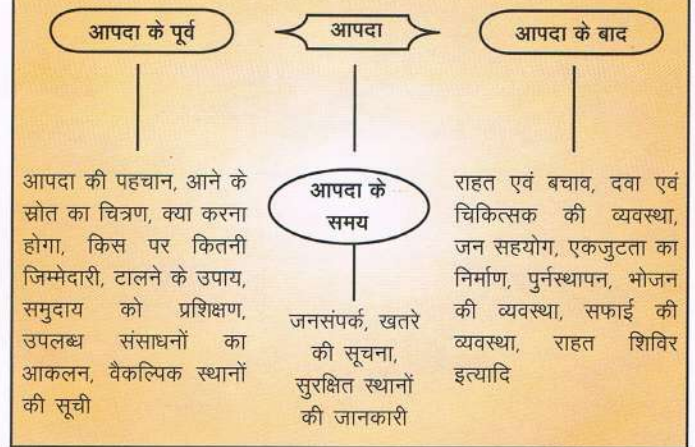 आपदा के पूर्व
आपदा
आपदा के बाद
आपदा की पहचान, आने के
स्रोत का चित्रण, क्या करना
होगा, किस पर कितनी
जिम्मेदारी, टालने के उपाय,
समुदाय को प्रशिक्षण,
उपलब्ध संसाधनों का
आकलन, वैकल्पिक स्थानों
की सूची
आपदा के
समय
जनसंपर्क, खतरे
की सूचना,
सुरक्षित स्थानों
की जानकारी
राहत एवं बचाव, दवा एवं
चिकित्सक की व्यवस्था,
जन सहयोग, एकजुटता का
निर्माण, पुर्नस्थापन, भोजन
की व्यवस्था, सफाई की
व्यवस्था, राहत शिविर
इत्यादि